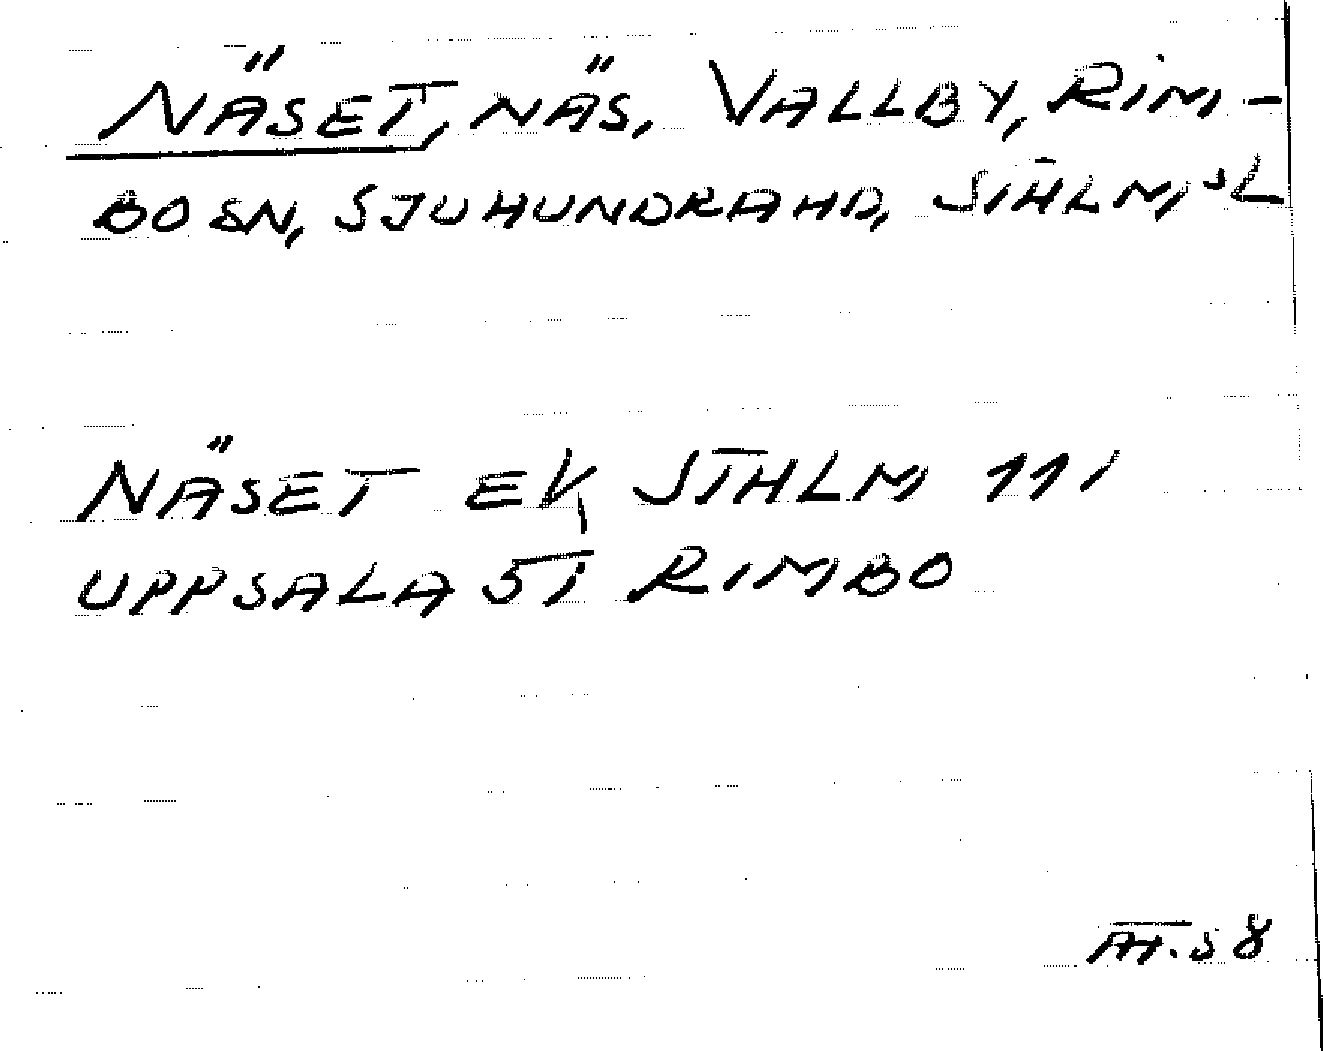 NÄSET, NÄS, VALLBY, RIM-
BO SN, SJUHUNDRA HD, STHLMS L
NÄSET EK STHLM 111
UPPSALA 51 RIMBO